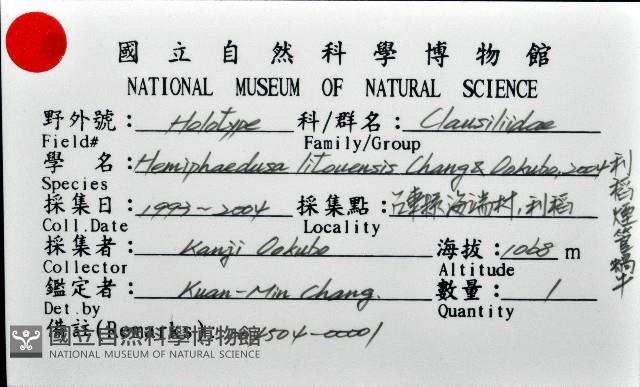 國立自然科學博物館
NATIONAL MUSEUM OF NATURAL SCIENCE
野外號： Holotype 科/群名： Clausiliidae
Field# Family/Group
學 名： Hemiphaedusa litouensis Chang & Ookubo, 2004
Species
利稻煙管蝸牛
採集日： 1993～2004 採集點： 海瑞村, 利稻
Coll.Date Locality
採集者： Kanji Ookubo 海拔： 1068 m
Collector Altitude
鑑定者： Kuan-Min Chang. 數量： 1
Det.by Quantity
備註(Remarks) 4504-00001
國立自然科學博物館
NATIONAL MUSEUM OF NATURAL SCIENCE